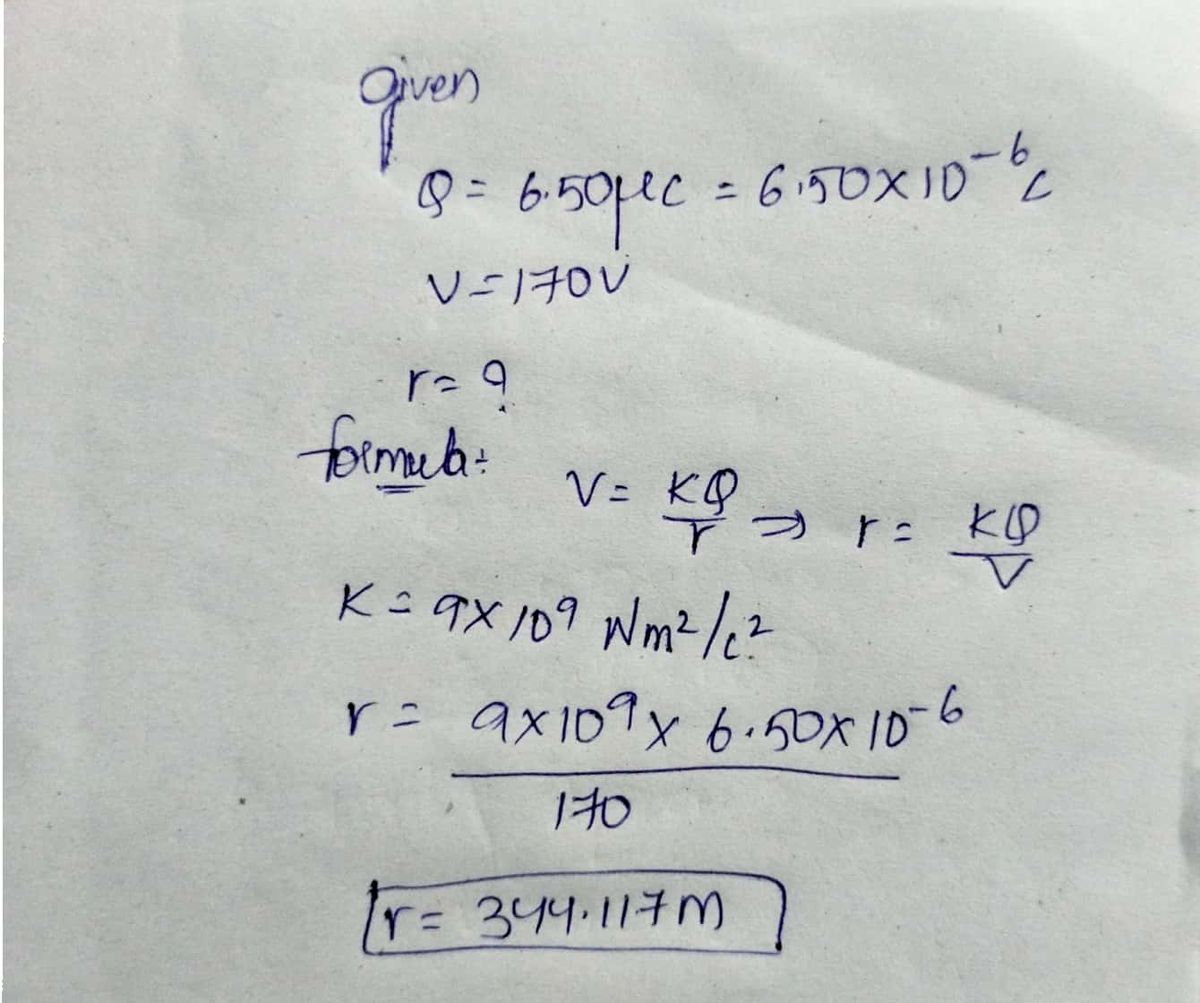 given
Q = 6.50μC = 6.50×10⁻⁶C
V=170V
r= ?
formula:
V= KQ/r ⇒ r= KQ/V
K = 9×10⁹ Nm²/C²
r= 9×10⁹× 6.50×10⁻⁶
170
r= 344.117m